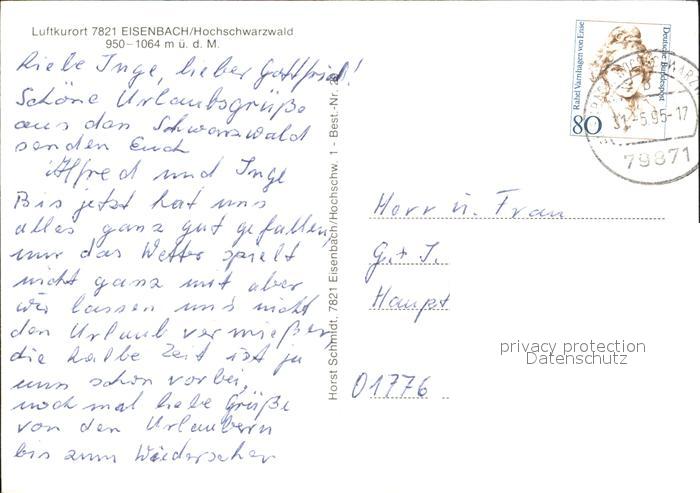 Luftkurort 7821 EISENBACH/Hochschwarzwald
950–1064 m ü. d. M.
Liebe Inge, lieber Gottfried!
Schöne Urlaubsgrüße
aus dem Schwarzwald
senden Euch
Alfred und Inge
Bis jetzt hat uns
alles ganz gut gefallen,
nur das Wetter spielt
nicht ganz mit aber
wir lassen uns nicht
den Urlaub vermießen,
die halbe Zeit ist ja
uns schon vorbei,
noch mal liebe Grüße
von den Urlaubern
bis zum Wiedersehen
Horst Schmidt, 7821 Eisenbach/Hochschw. 1 - Best.-Nr.
Rahel Varnhagen von Ense
Deutsche Bundespost
80
31.-5.95-17
79871
Herr u. Frau
G. + I.
Haupt
01776
privacy protection
Datenschutz